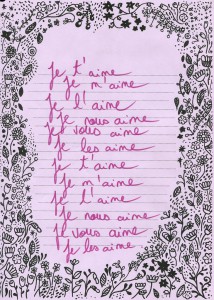 je t'aime
je m'aime
je l'aime
je nous aime
je vous aime
je les aime
je t'aime
je m'aime
je l'aime
je nous aime
je vous aime
je les aime